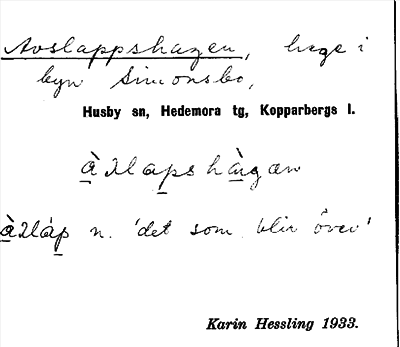 Avslappshagen, hage i
byn Simonsbo,
Husby sn, Hedemora tg, Kopparbergs l.
n. 'det som blir över'
Karin Hessling 1933.